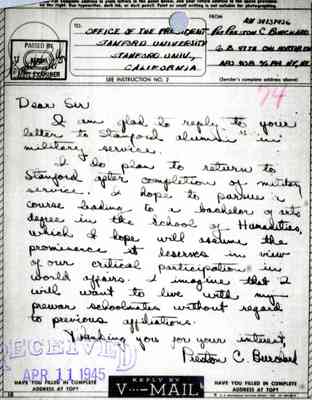 PASSED BY
EXAMINER
TO:
OFFICE OF THE PRESIDENT
STANFORD UNIVERSITY
STANFORD UNIV.,
CALIFORNIA
From
Pvt PRESTON C. BURCHARD
(Sender's complete address above)
SEE INSTRUCTION NO. 2
74
Dear Sir
I am glad to reply to your
letter to Stanford alumni "in
military service.
I do plan to return to
Stanford after completion of military
service. I hope to pursue a
course leading to a bachelor of arts
degree in the School of Humanities,
which I hope will assume the
prominence it deserves in view
of our critical participation in
world affairs. I imagine that I
will want to live with my
prewar schoolmates without regard
to previous affiliations.
Thanking you for your interest,
Preston C. Burchard
RECEIVED
APR 11 1945
HAVE YOU FILLED IN COMPLETE
ADDRESS AT TOP?
REPLY BY
V···—MAIL
HAVE YOU FILLED IN COMPLETE
ADDRESS AT TOP?